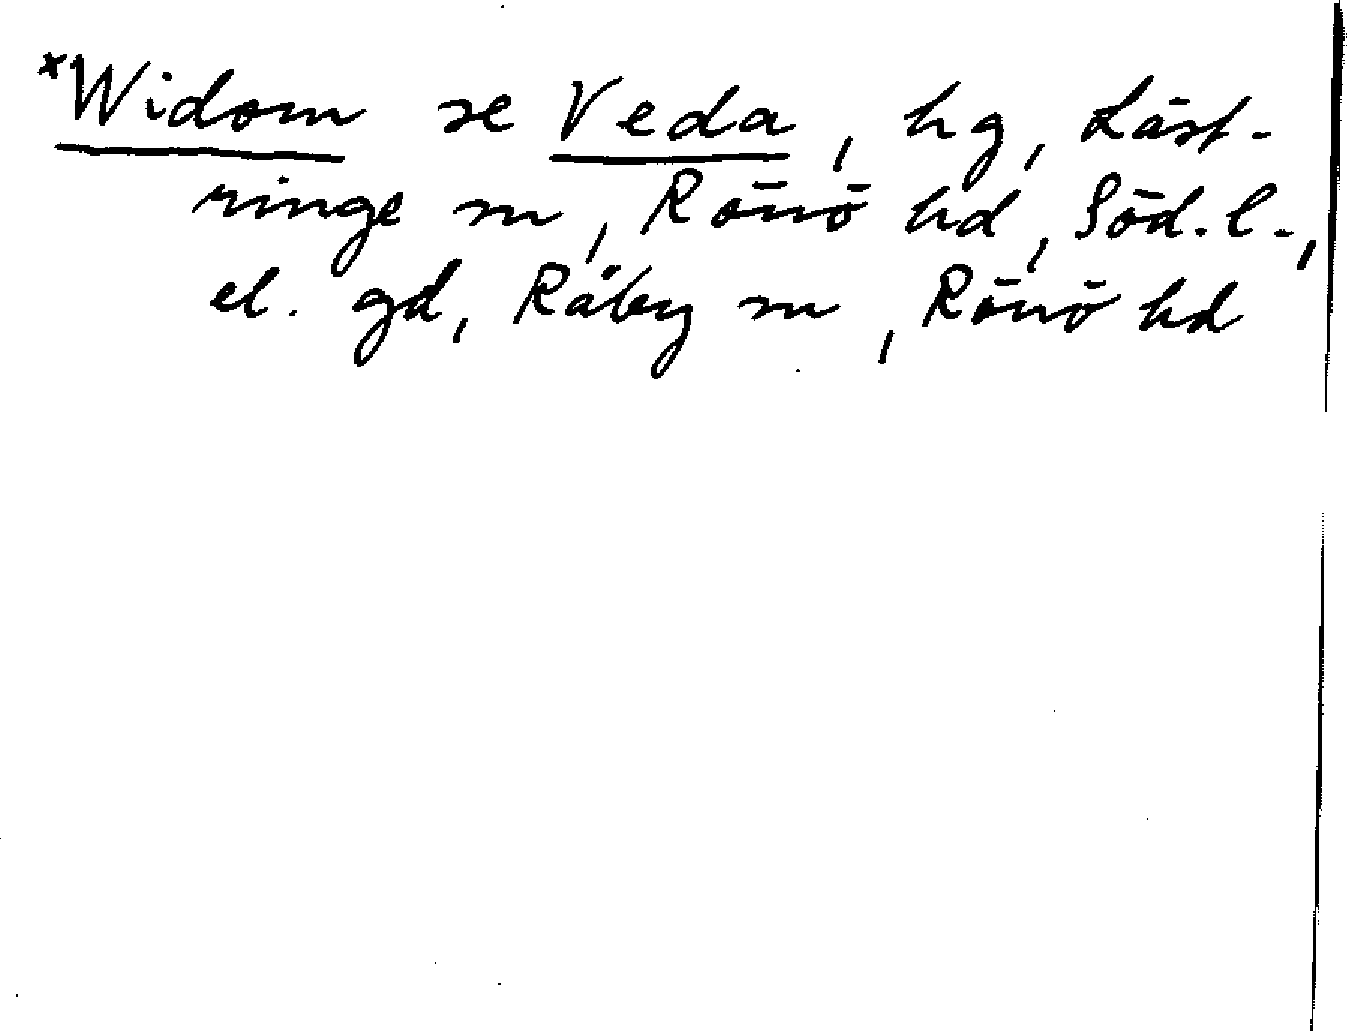 *Widom se Veda, hg, Läst-
ringe sn, Rönö hd, Söd. l.,
el. gd, Råby sn, Rönö hd